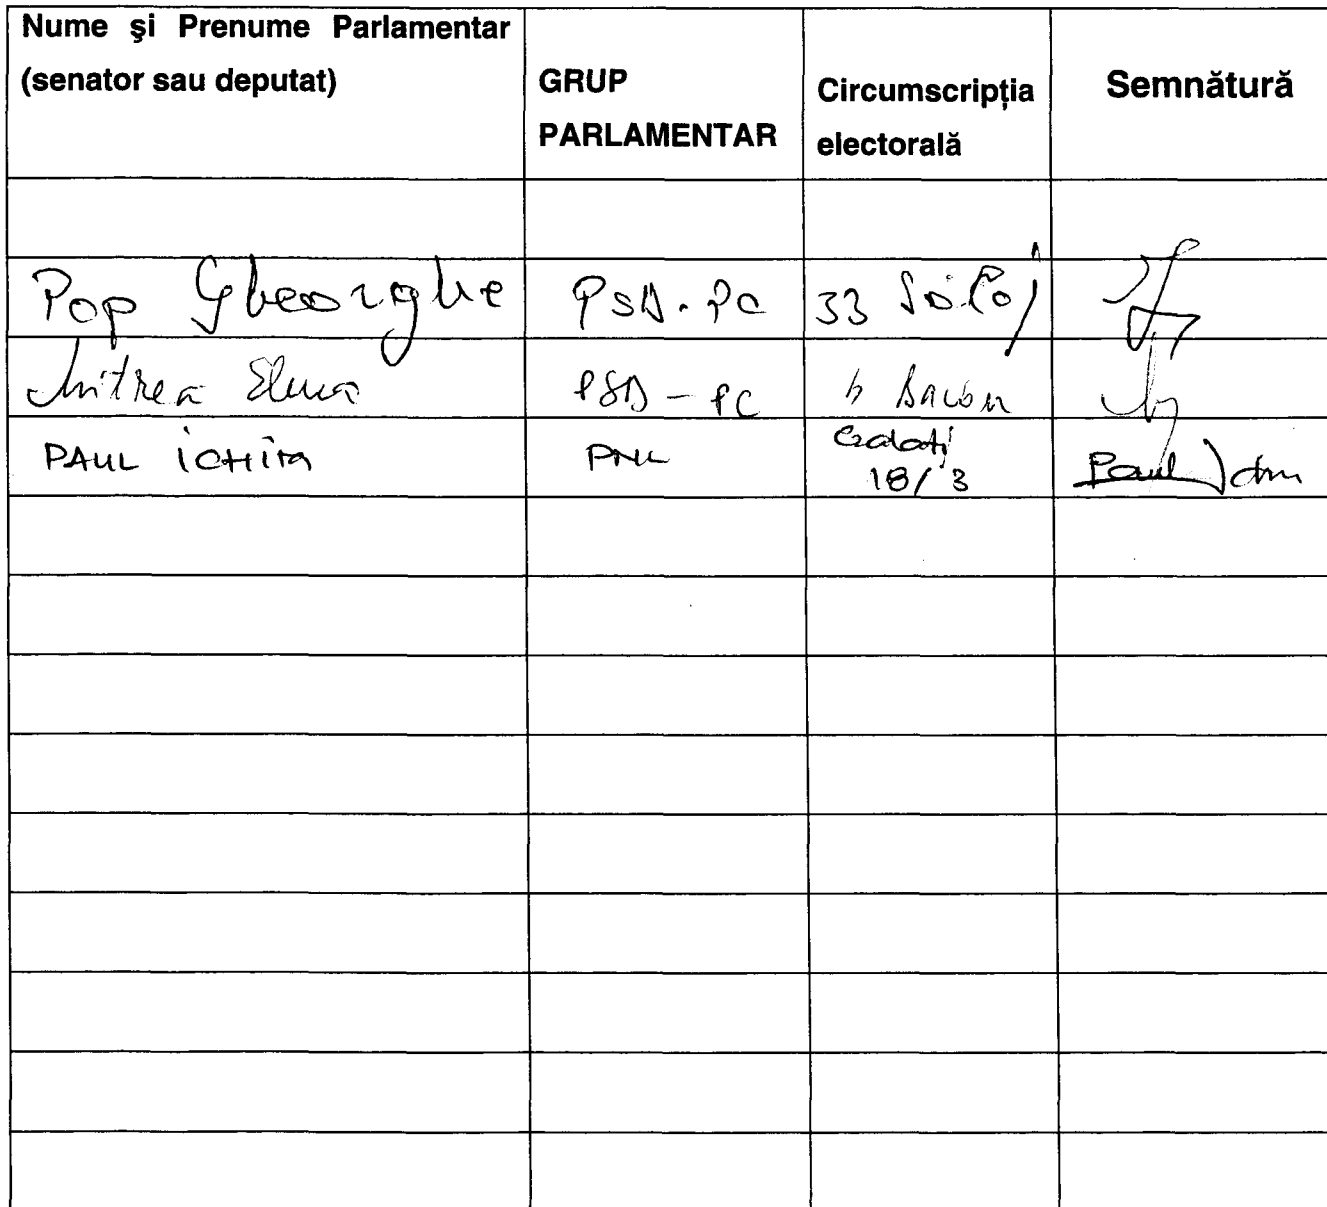 Nume şi Prenume Parlamentar
(senator sau deputat)
GRUP
PARLAMENTAR
Circumscripţia
electorală
Semnătură
Pop Gheorghe PSD-PC 33
Mitrea Elena PSD-PC Bacău
PAUL ICHIM PNL Galaţi
18/3 Paul